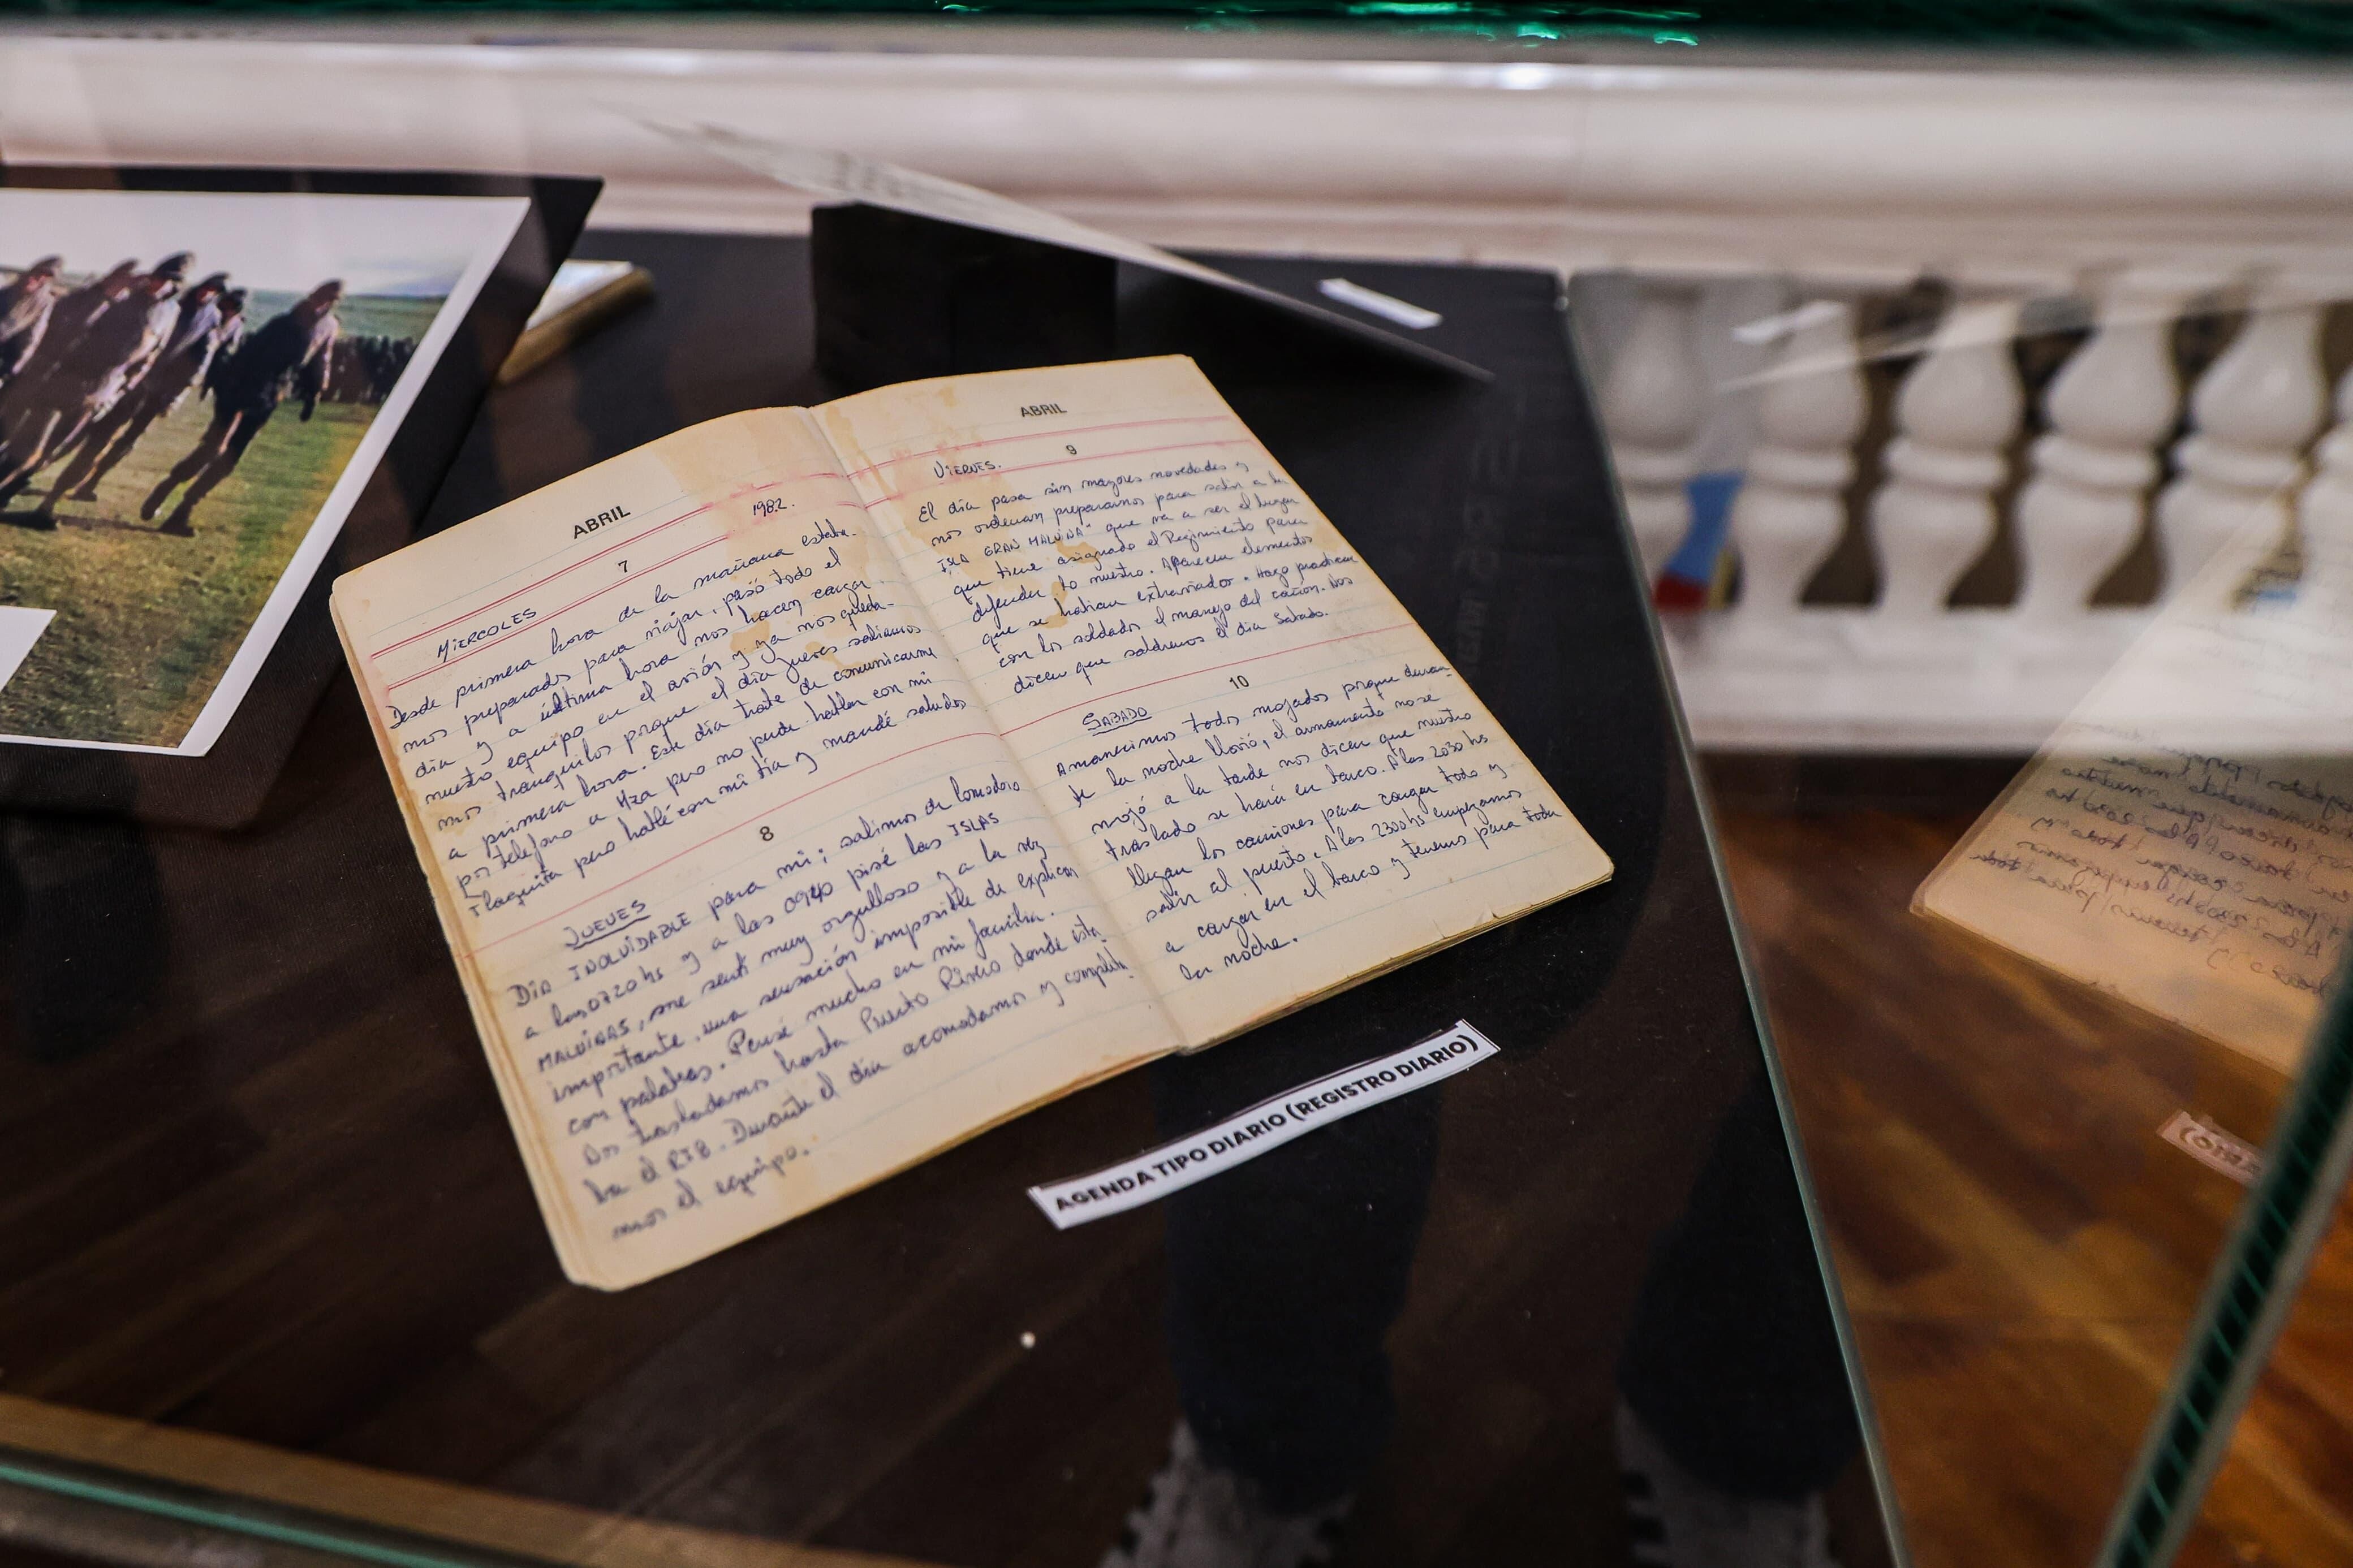 ABRIL
7
1982.
MIERCOLES
Desde primera hora de la mañana estaba-
mos preparados para viajar, pasó todo el
día y a última hora nos hacen cargar
nuestro equipo en el avión y ya nos queda-
mos tranquilos porque el día jueves saliamos
a primera hora. Este día traté de comunicarme
por teléfono a Mza pero no pude hablar con mi
flaquita pero hablé con mi tía y mandé saludos
8
JUEVES
DÍA INOLVIDABLE para mi; salimos de Comodoro
a las 0720 hs y a las 0940 pisé las ISLAS
MALVINAS, me sentí muy orgulloso y a la vez
importante, una sensación imposible de explicar
con palabras. Pensé mucho en mi familia.
Nos trasladamos hasta Puerto Rivero donde esta-
ba el RI8. Durante el día acomodamos y completa-
mos el equipo.
ABRIL
9
VIERNES.
El día pasa sin mayores novedades y
nos ordenan prepararnos para salir a la
ISLA GRAN MALVINA" que va a ser el lugar
que tiene asignado el Regimiento para
defender lo nuestro. Aparecen elementos
que se habian extraviados. Hago practicar
con los soldados el manejo del cañon. Nos
dicen que saldremos el día Sabado.
10
SABADO
Amanecimos todos mojados porque duran-
te la noche llovió, el armamento no se
mojó a la tarde nos dicen que nuestro
traslado se hará en barco. A las 2030 hs
llegan los camiones para cargar todo y
salir al puerto. A las 2300 hs empezamos
a cargar en el barco y tenemos para toda
la noche.
AGENDA TIPO DIARIO (REGISTRO DIARIO)